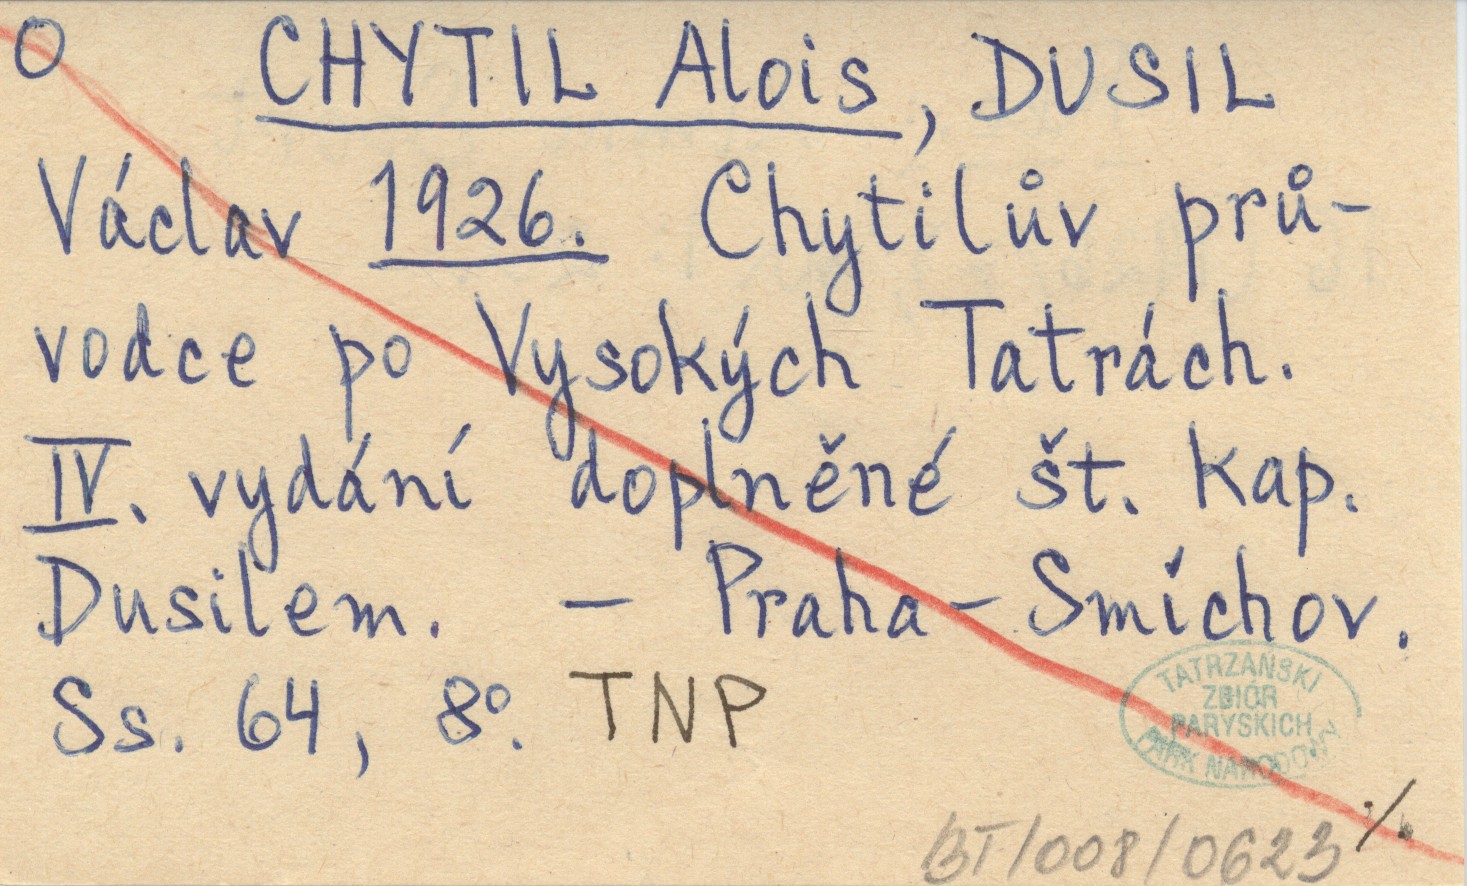 O CHYTIL Alois, DUSIL
Václav 1926. Chytilův prů-
vodce po Vysokých Tatrách.
IV. vydání doplněné št. kap.
Dusilem. – Praha – Smíchov.
Ss. 64, 8°. TNP
TATRZAŃSKI
ZBIÓR
PARYSKICH
PARK NARODOWY
./.
BT/008/0623